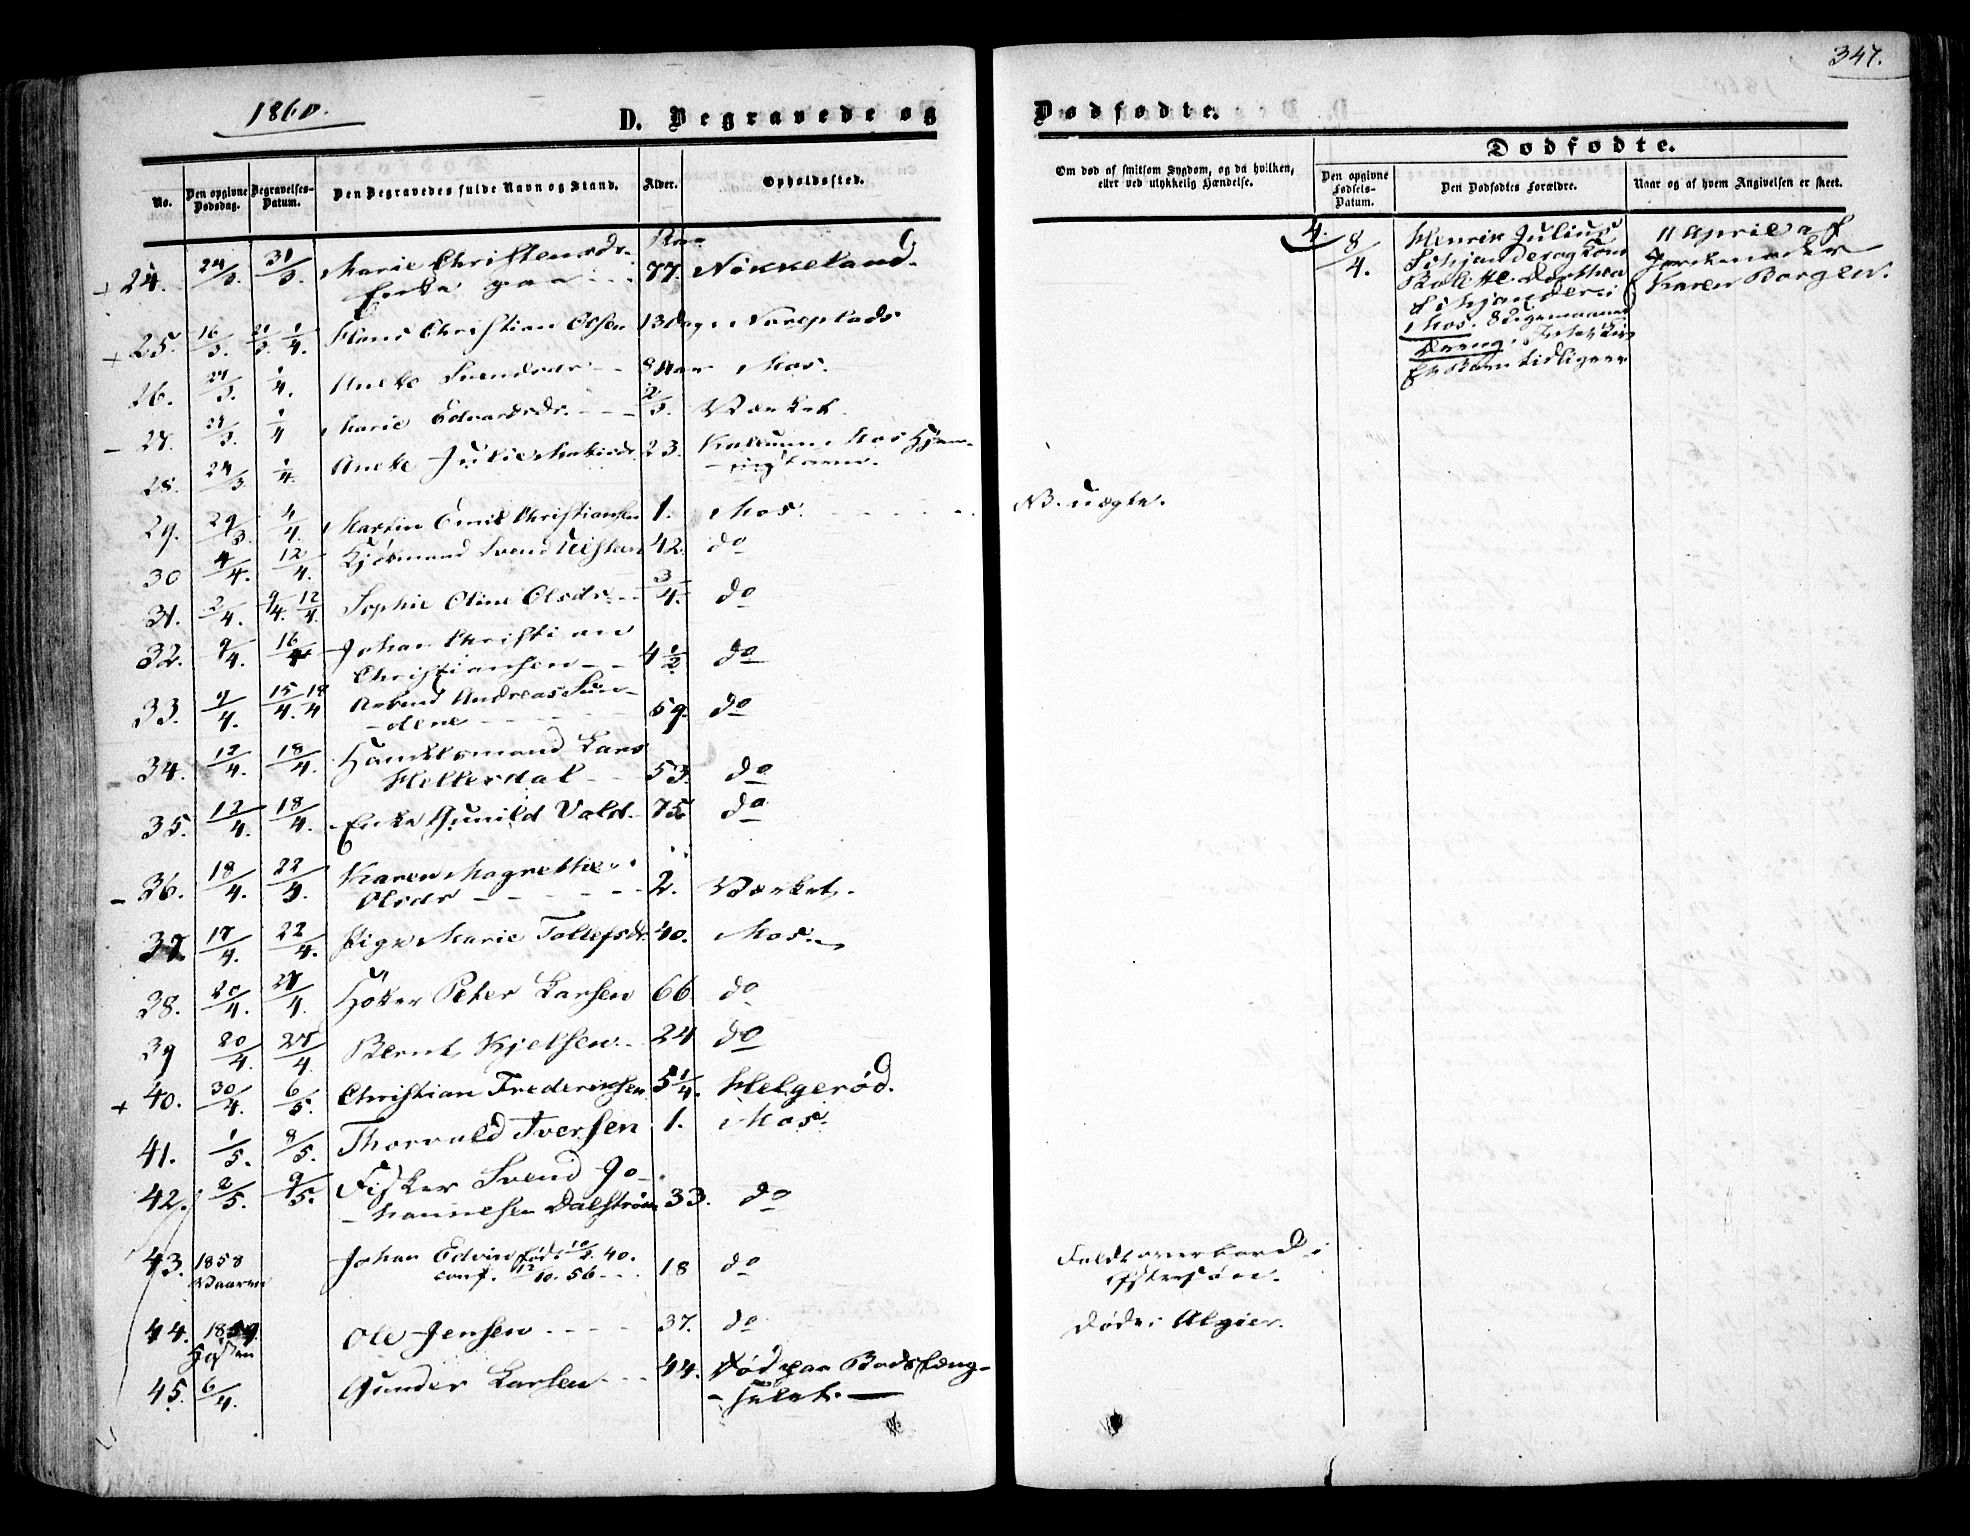 347.
1860.
D. Begravede og
Dødfødte.
No.
Den opgivne Dødsdag.
Begravelses-Datum.
Den Begravedes fulde Navn og Stand.
Alder.
Opholdssted.
Om død af smitsom Sygdom, og da hvilken,
eller ved ulykkelig Hændelse.
Dødfødte.
Den opgivne Fødsels-Datum.
Den Dødfødtes Forældre.
Naar og af hvem Angivelsen er skeet.
24. 24/3. 31/3. Marie Christensdr. 77. Nökkeland.
Enke paa
25. 16/3. 21/3. 1/4. Hans Christian Olsen 13 Dage Noreplads
26. 24/3. 1/4. Anette Svendsdr. Aar Mos.
27. 1/4 Marie Edvardsdr. 2/3. Værket.
28. 24/3 1/4. Anette Julie 23. Mos
29. 29/3. 4/4. Martin Emil Christiansen 1. Mos. NB. uægte.
30 4/4. 12/4. Kjøbmand Svend 42. do
31. 2/4. 9/4. 12/4. Sophie Oline Olsdr. 3/4. do
32. 9/4. 16/4 Johan Christian
Christiansen 4 1/2 do
33. 9/4. 15/4. 18/4 Arbmd Andreas Sun-
dene 59. do
34. 12/4. 18/4. Handelsmand Lars
Hellerdal 53. do
35. 12/4. 18/4. Enke Gunild Vold. 75 do
36. 18/4. 22/4. Karen Magrethe
Olsdr 2. Værket.
37. 17/4. 22/4. Pige Marie Tollefsdr. 40. Mos.
38. 20/4. 27/4. Höker Peter Larsen 66 do
39 20/4. 27/4. Bernt Kjelsen 24 do
40. 30/4. 6/5. Christian Frederiksen 5 1/4. Helgerød.
41. 1/5. 8/5. Thorvald Iversen 1. Mos.
42. 2/5. 9/5. Fisker Svend Jo-
hannesen Dalström 33. do
43. 1858 Johan Edvin fød 10/3. 40. 18 do Faldt overbord i
Vaaren conf. 12/10. 56 Østersøen.
44. 1859 Ole Jensen 37. do Døde i Algier.
Høsten
45. 6/4. Gunder Larsen 44. Død paa Bodsfæng-
selet.
4. 8/4. Henrik Julius
11 April af
Jordemoder
Karen Borgen.
Mos.
Dreng.
Børn tidligere